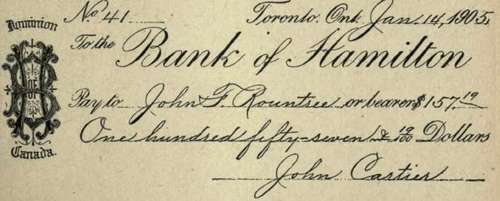 No 41 Toronto. Ont. Jan 14, 1905.
Dominion
To the Bank of Hamilton
Pay to John F. Rountree or bearer $157.19
One hundred fifty-seven & 19/100 Dollars
Canada.
John Cartier